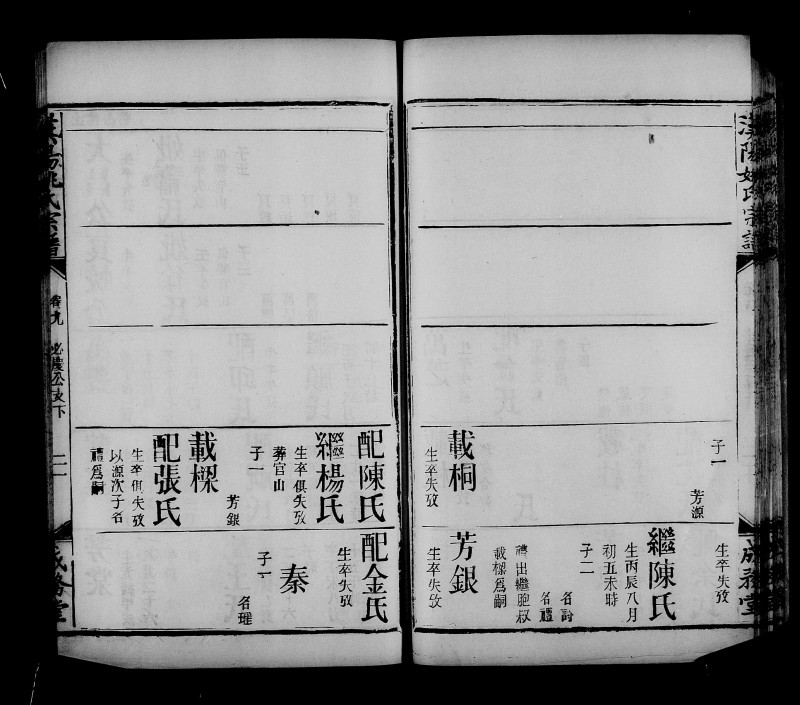 漢陽姚氏宗譜
成務堂
子一
芳源
載桐
生卒失攷
生卒失攷
繼陳氏
生丙辰八月
初五未時
子二
名詩
名禮
禮出繼胞叔
載樑爲嗣
芳銀
生卒失攷
配陳氏
繼楊氏
生卒俱失攷
葬官山
子一
芳銀
載樑
配張氏
生卒俱失攷
以源次子名
禮爲嗣
配金氏
生卒失攷
秦
子一
名瑾
漢陽姚氏宗譜
卷九
必慶公支下
二
成務堂